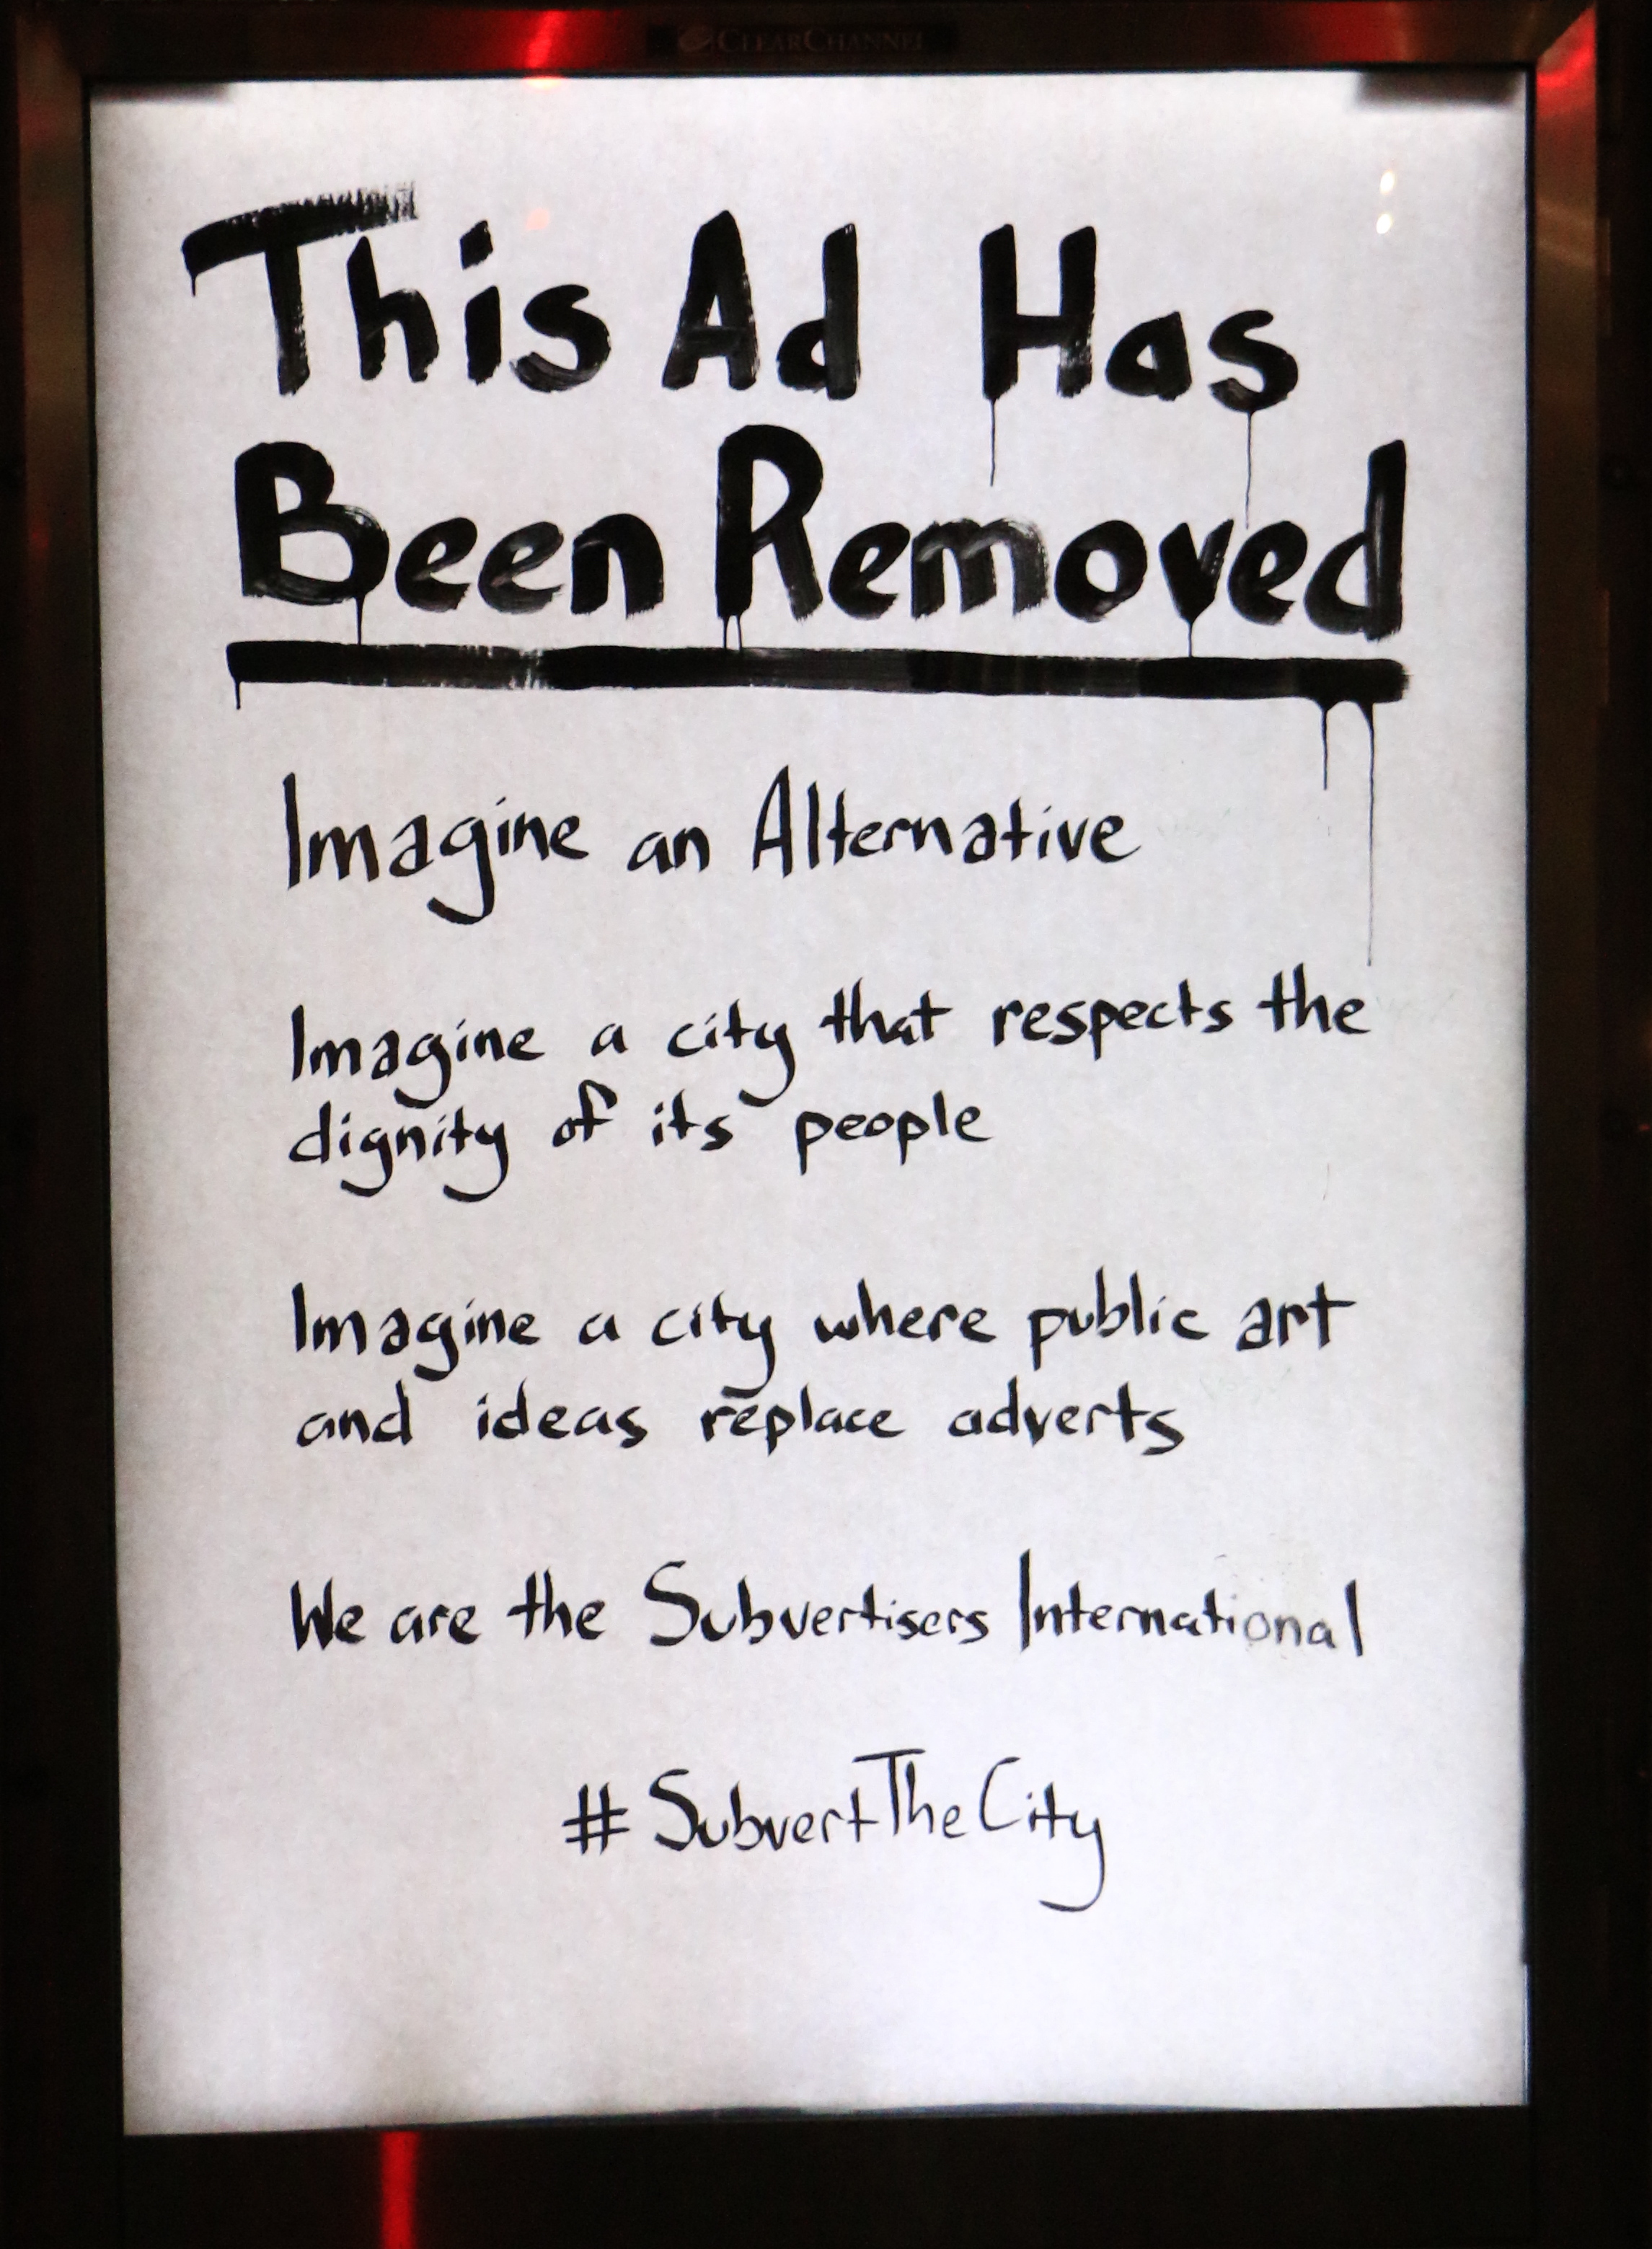 CLEARCHANNEL
This Ad Has
Been Removed
Imagine an Alternative
Imagine a city that respects the
dignity of its people
Imagine a city where public art
and ideas replace adverts
We are the Subvertisers International
#SubvertTheCity